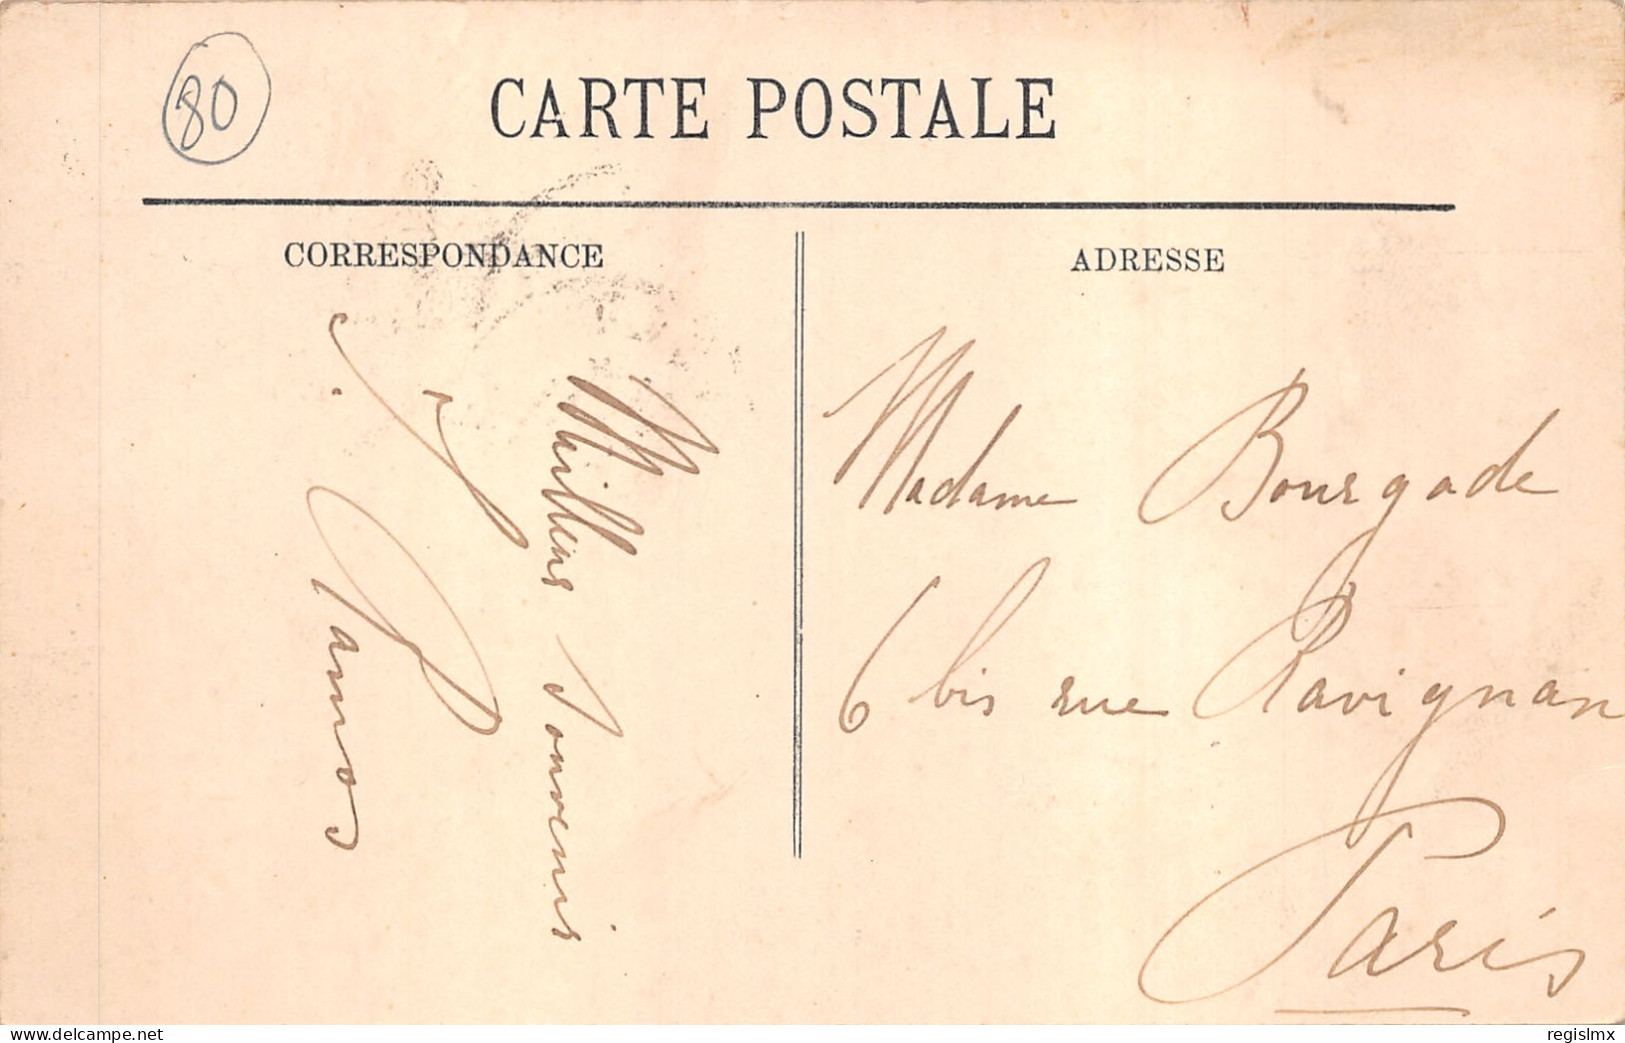 80
CARTE POSTALE
CORRESPONDANCE
ADRESSE
Meilleurs Souvenirs
Madame Bourgade
6 bis rue Ravignan
Paris
delcampe.net
regislmx